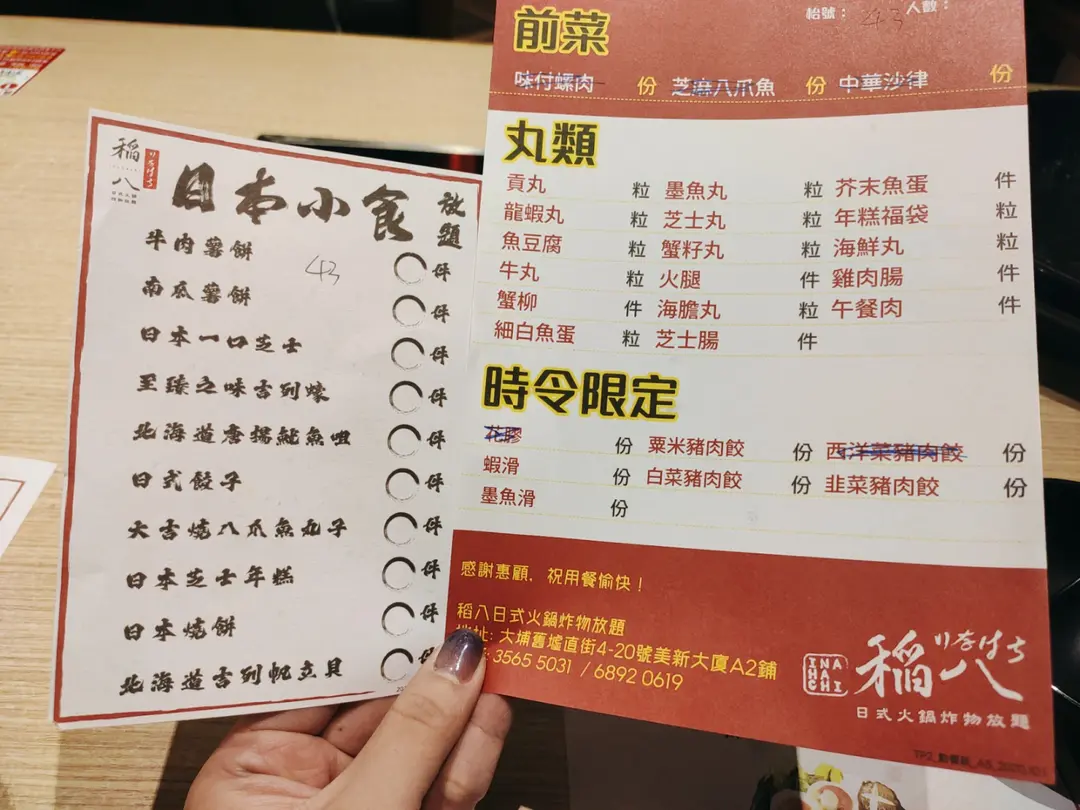 稻八
日本小食 放題
43
牛肉薯餅 件
南瓜薯餅 件
日本一口芝士 件
至臻之味吉列蠔 件
北海道唐揚魷魚咀 件
日式餃子 件
大吉燒八爪魚丸子 件
日本芝士年糕 件
日本燒餅 件
北海道吉列帆立貝 件
枱號: 43 人數:
前菜
味付螺肉 份 芝麻八爪魚 份 中華沙律 份
丸類
貢丸 粒 墨魚丸 粒 芥末魚蛋 件
龍蝦丸 粒 芝士丸 粒 年糕福袋 粒
魚豆腐 粒 蟹籽丸 粒 海鮮丸 粒
牛丸 粒 火腿 件 雞肉腸 件
蟹柳 件 海膽丸 粒 午餐肉 件
細白魚蛋 粒 芝士腸 件
時令限定
花膠 份 粟米豬肉餃 份 西洋菜豬肉餃 份
蝦滑 份 白菜豬肉餃 份 韭菜豬肉餃 份
墨魚滑 份
感謝惠顧,祝用餐愉快!
稻八日式火鍋炸物放題
地址: 大埔舊墟直街4-20號美新大廈A2鋪
: 3565 5031 / 6892 0619
INA HACHI 稻八 いなはち
日式火鍋炸物放題